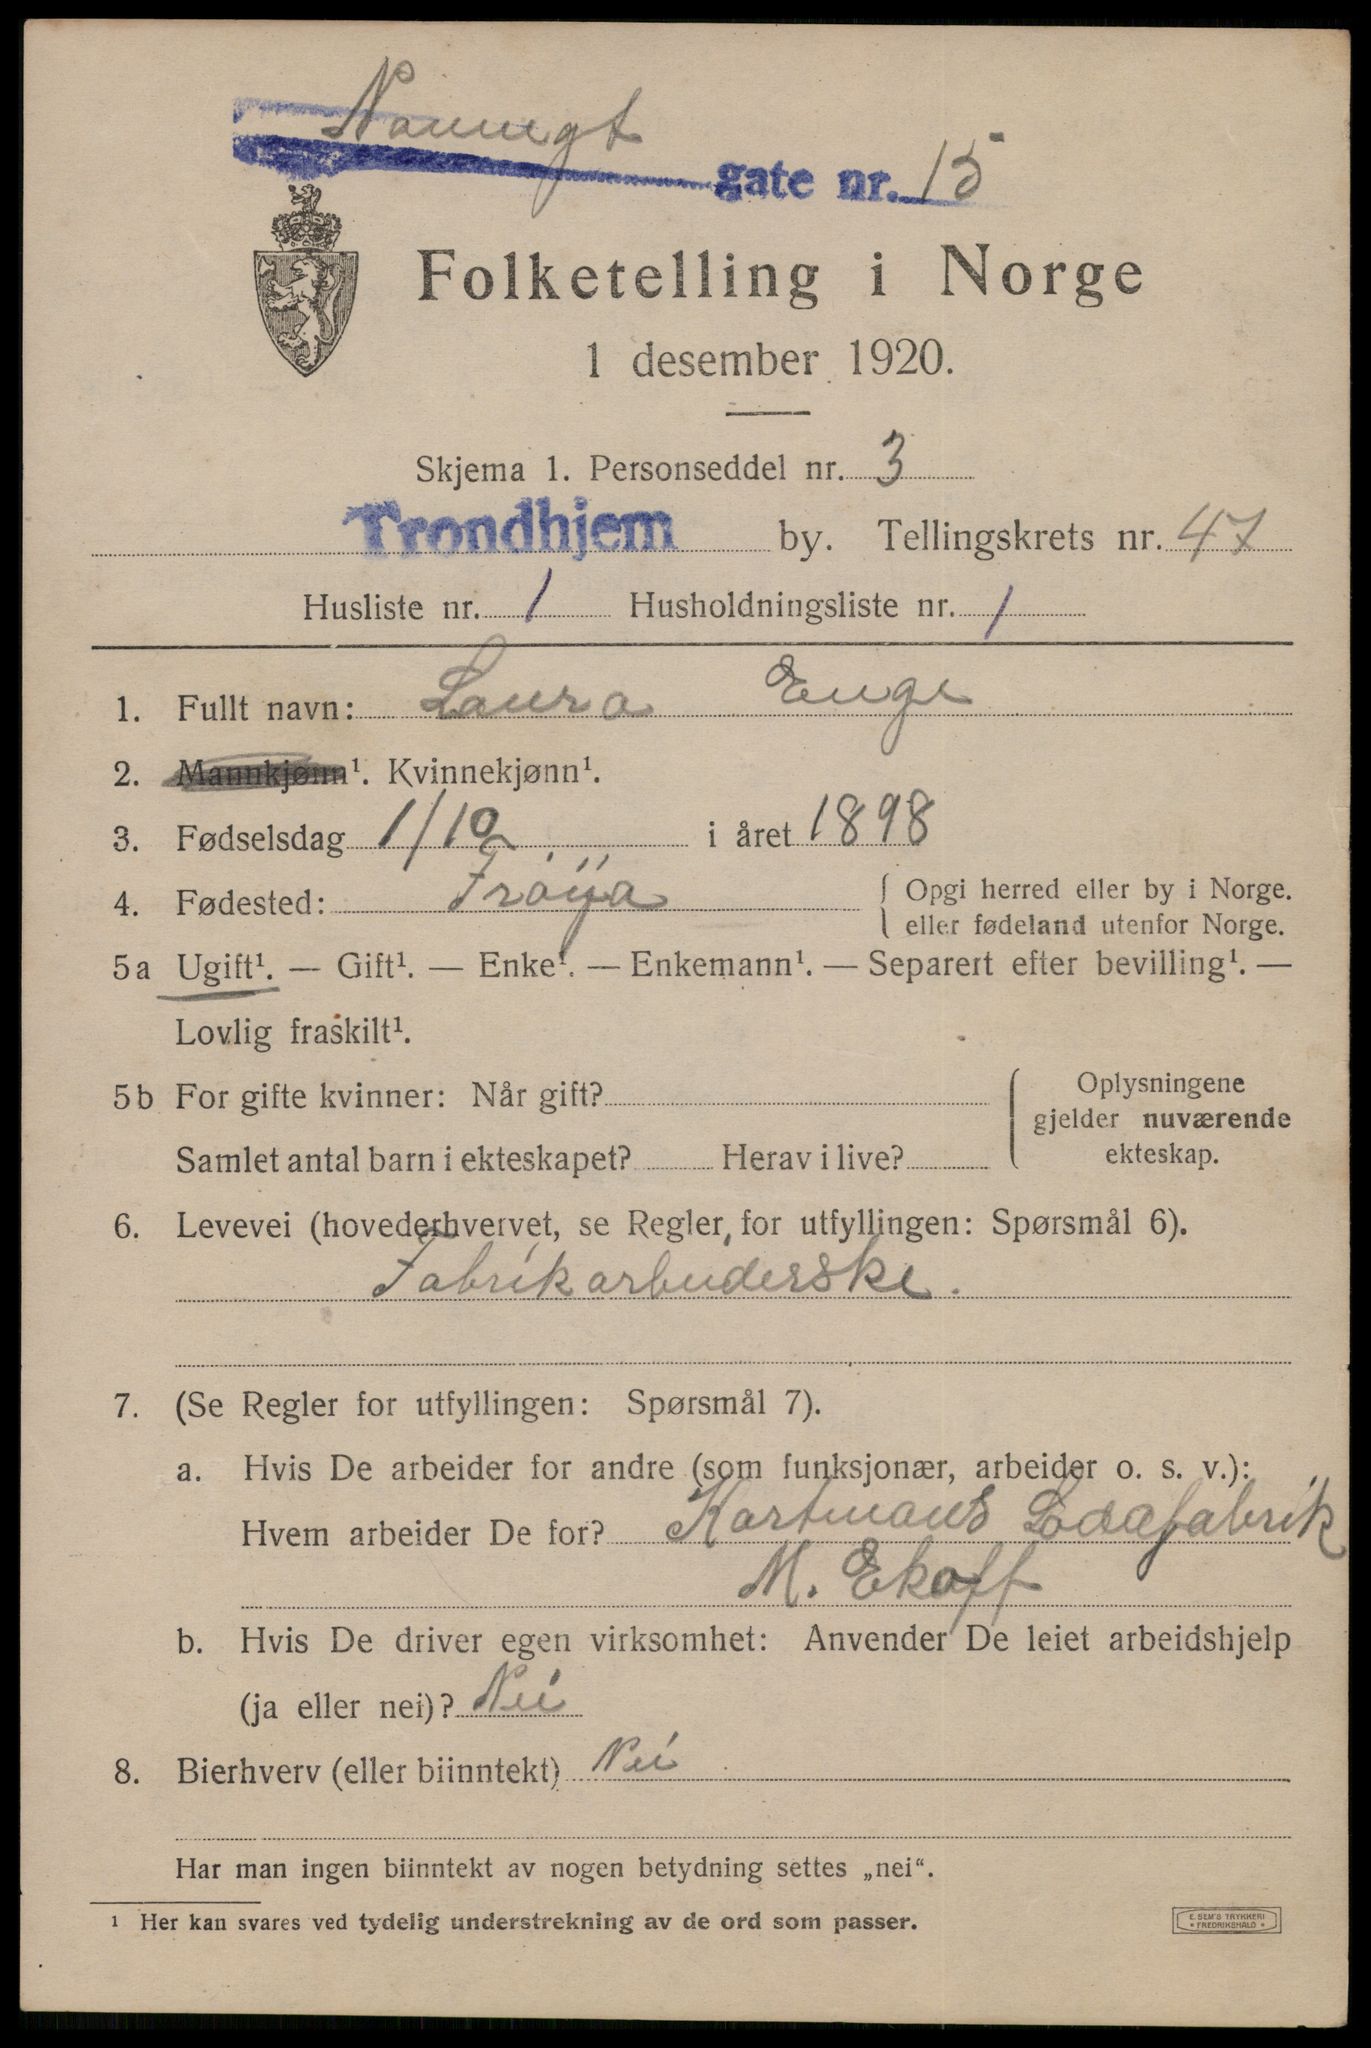 Nonnegt
gate nr. 15
Folketelling i Norge
1 desember 1920.
Skjema 1. Personseddel nr. 3
Trondhjem by. Tellingskrets nr. 47
Husliste nr. 1 Husholdningsliste nr. 1
1. Fullt navn: Laura Enge
2. Mannkjønn¹. Kvinnekjønn¹.
3. Fødselsdag 1/10 i året 1898
4. Fødested: Frøya { Opgi herred eller by i Norge.
eller fødeland utenfor Norge.
5a Ugift¹. — Gift¹. — Enke¹. — Enkemann¹. — Separert efter bevilling¹. —
Lovlig fraskilt¹.
5b For gifte kvinner: Når gift?
Samlet antal barn i ekteskapet? Herav i live?
Oplysningene
gjelder nuværende
ekteskap.
6. Levevei (hovederhvervet, se Regler for utfyllingen: Spørsmål 6).
Fabrikarbeiderske.
7. (Se Regler for utfyllingen: Spørsmål 7).
a. Hvis De arbeider for andre (som funksjonær, arbeider o. s. v.):
Hvem arbeider De for? Hartmans
M. Ekoff
b. Hvis De driver egen virksomhet: Anvender De leiet arbeidshjelp
(ja eller nei)? Nei
8. Bierhverv (eller biinntekt) Nei
Har man ingen biinntekt av nogen betydning settes „nei“.
¹ Her kan svares ved tydelig understrekning av de ord som passer.
E. SEM'S TRYKKERI
FREDRIKSHALD